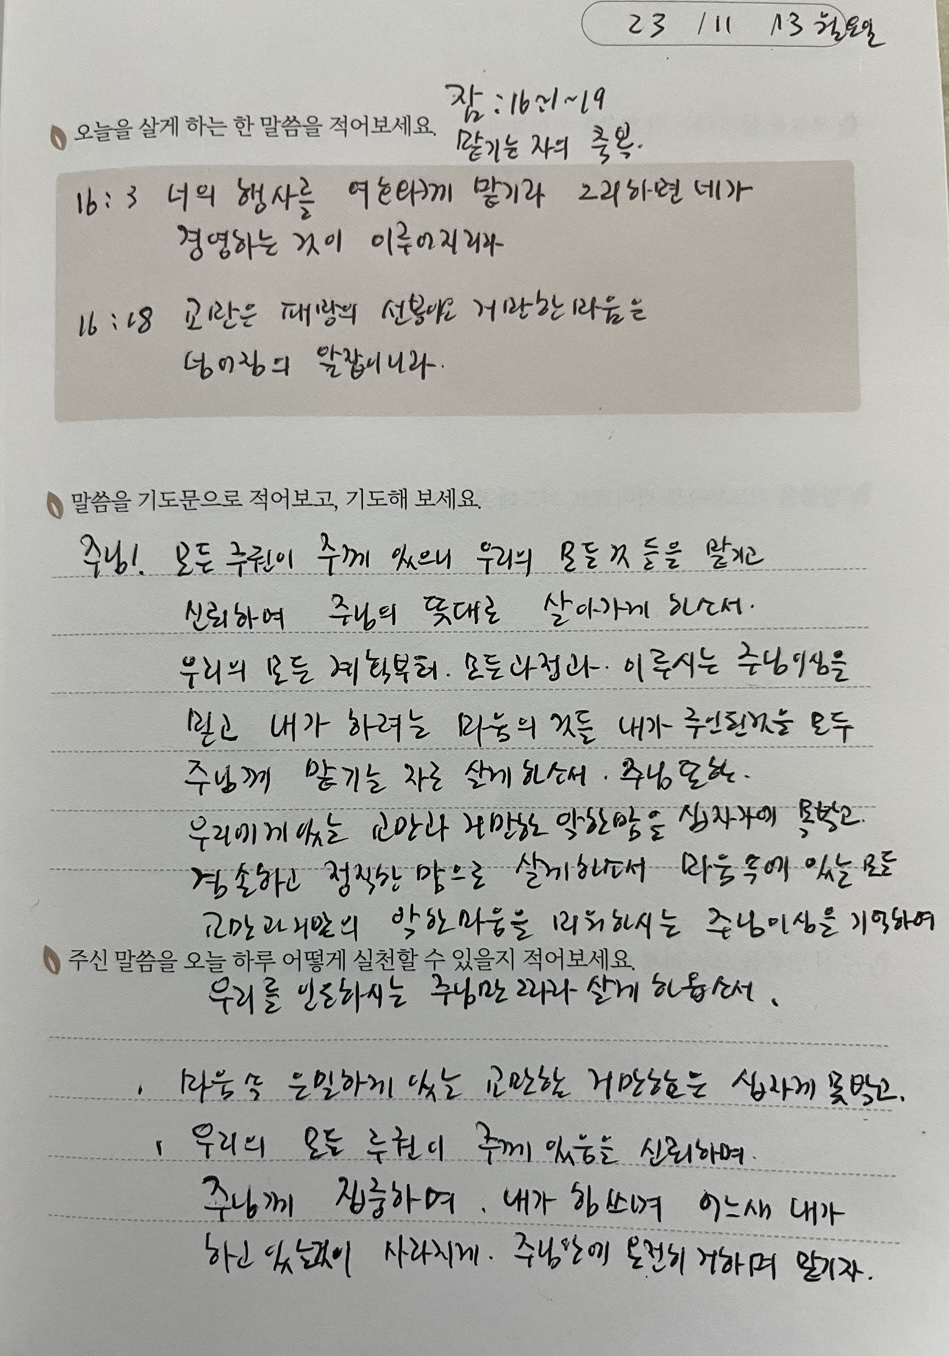 23 / 11 13 월요일
잠 : 16:1~19
오늘을 살게 하는 한 말씀을 적어보세요.
맡기는 자의 축복.
16 : 3 너의 행사를 여호와께 맡기라 그리하면 네가
경영하는 것이 이루어지리라
16 : 18 교만은 패망의 선봉이요 거만한 마음은
넘어짐의 앞잡이니라.
말씀을 기도문으로 적어보고, 기도해 보세요.
주님! 모든 주권이 주께 있으니 우리의 모든것 들을 맡기고
신뢰하여 주님의 뜻대로 살아가게 하소서.
우리의 모든 계획부터. 모든과정과. 이루시는 주님이심을
믿고 내가 하려는 마음의 것들 내가 주인된것을 모두
주님께 맡기는 자로 살게 하소서. 주님 또한.
우리에게 있는 교만과 거만한 악한맘을 십자가에 못박고.
겸손하고 정직한 맘으로 살게하소서 마음속에 있는 모든
교만과 거만의 악한마음을 미워하시는 주님이심을 기억하여
주신 말씀을 오늘 하루 어떻게 실천할 수 있을지 적어보세요.
우리를 인도하시는 주님만 따라 살게 하옵소서.
. 마음속 은밀하게 있는 교만함 거만함은 십자게 못박고.
. 우리의 모든 주권이 주께 있음을 신뢰하며.
주님께 집중하여. 내가 힘쓰며 어느새 내가
하고 있는것이 사라지게. 주님안에 온전히 거하며 맡기자.